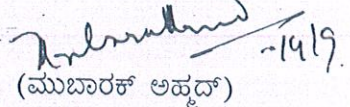 -14/9.
(ಮುಬಾರಕ್ ಅಹ್ಮದ್)